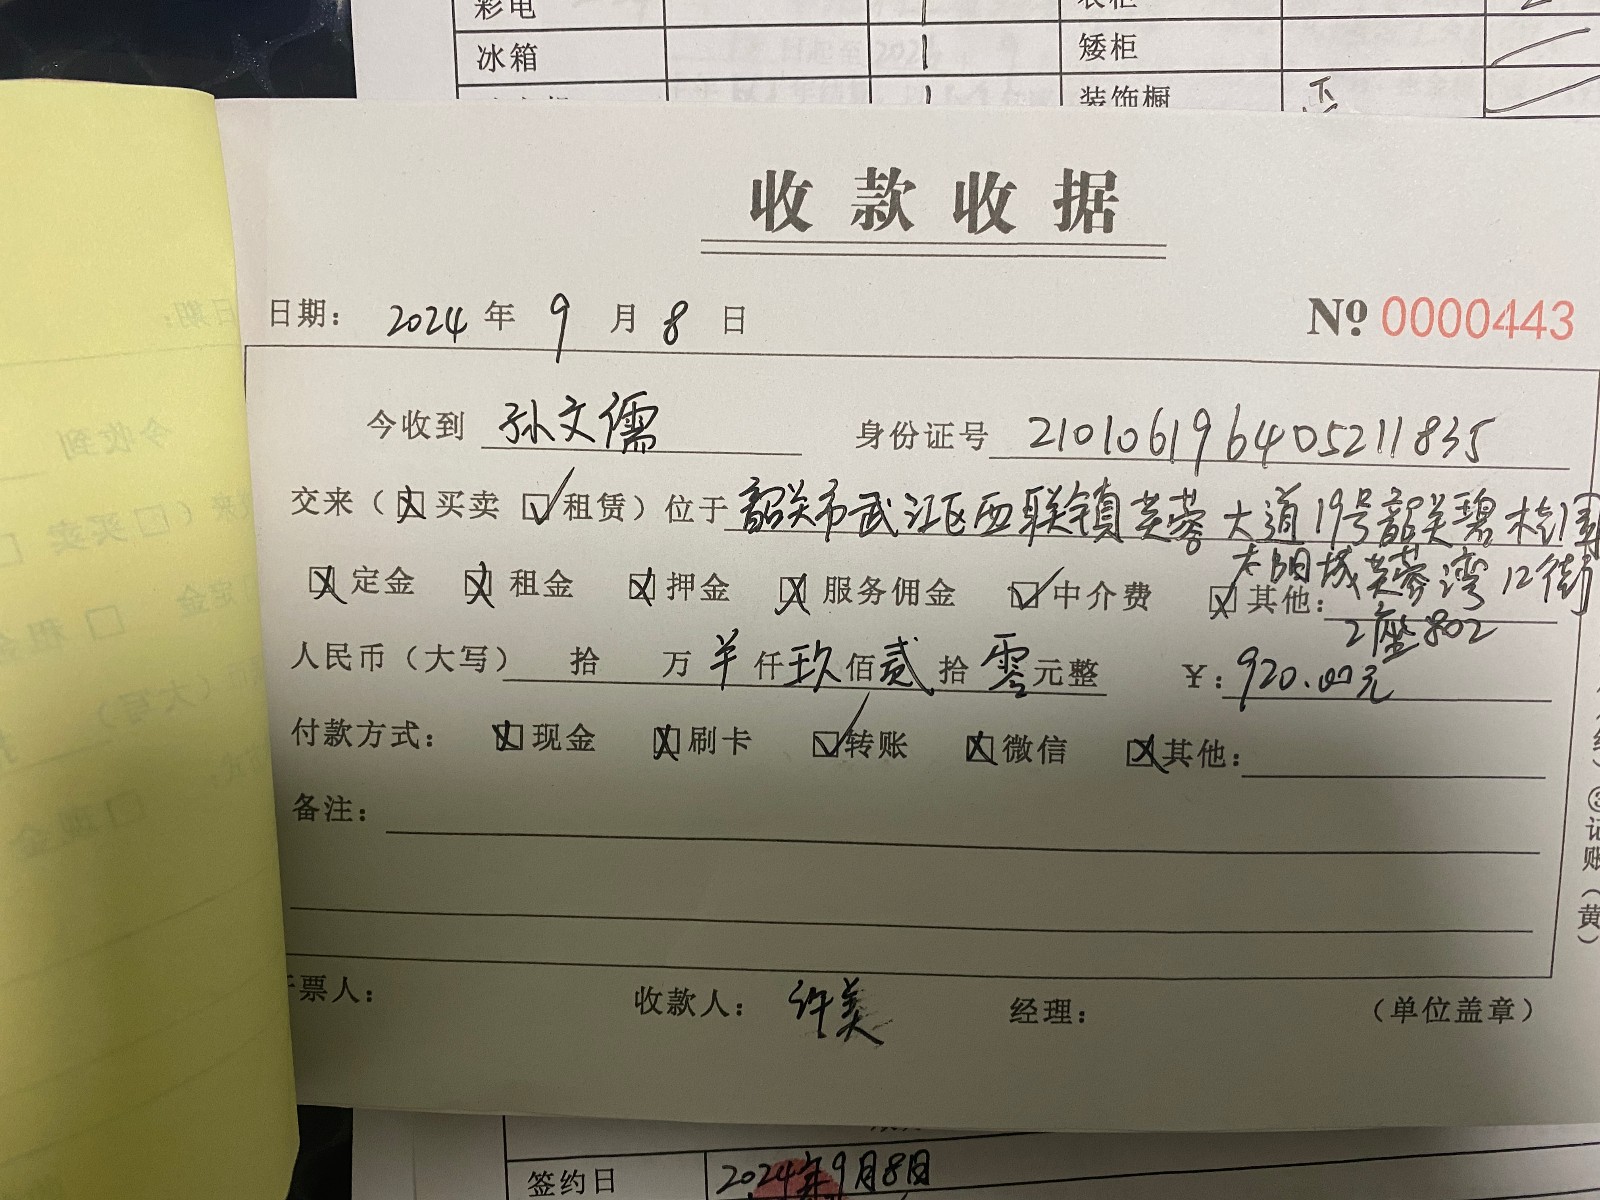 彩电 1 衣柜
冰箱 1 矮柜
1 装饰橱
收款收据
日期： 2024 年 9 月 8 日 № 0000443
今收到 孙文儒 身份证号 210106196405211835
交来（☒买卖 ☑租赁）位于 韶关市武江区西联镇芙蓉大道19号韶关碧桂园
太阳城芙蓉湾12街
☒定金 ☒租金 ☒押金 ☒服务佣金 ☑中介费 ☒其他：
2座802
人民币（大写） 拾 万 羊 仟 玖 佰 贰 拾 零 元整 ¥：920.00元
付款方式： ☒现金 ☒刷卡 ☑转账 ☒微信 ☒其他：
备注：
票人： 收款人： 许美 经理： （单位盖章）
③记账（黄）
签约日 2024年9月8日